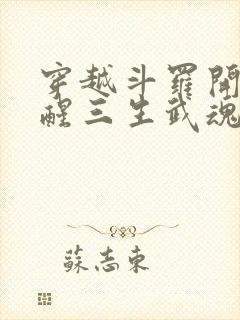 穿越斗羅開
醒三生武魂
蘇志東